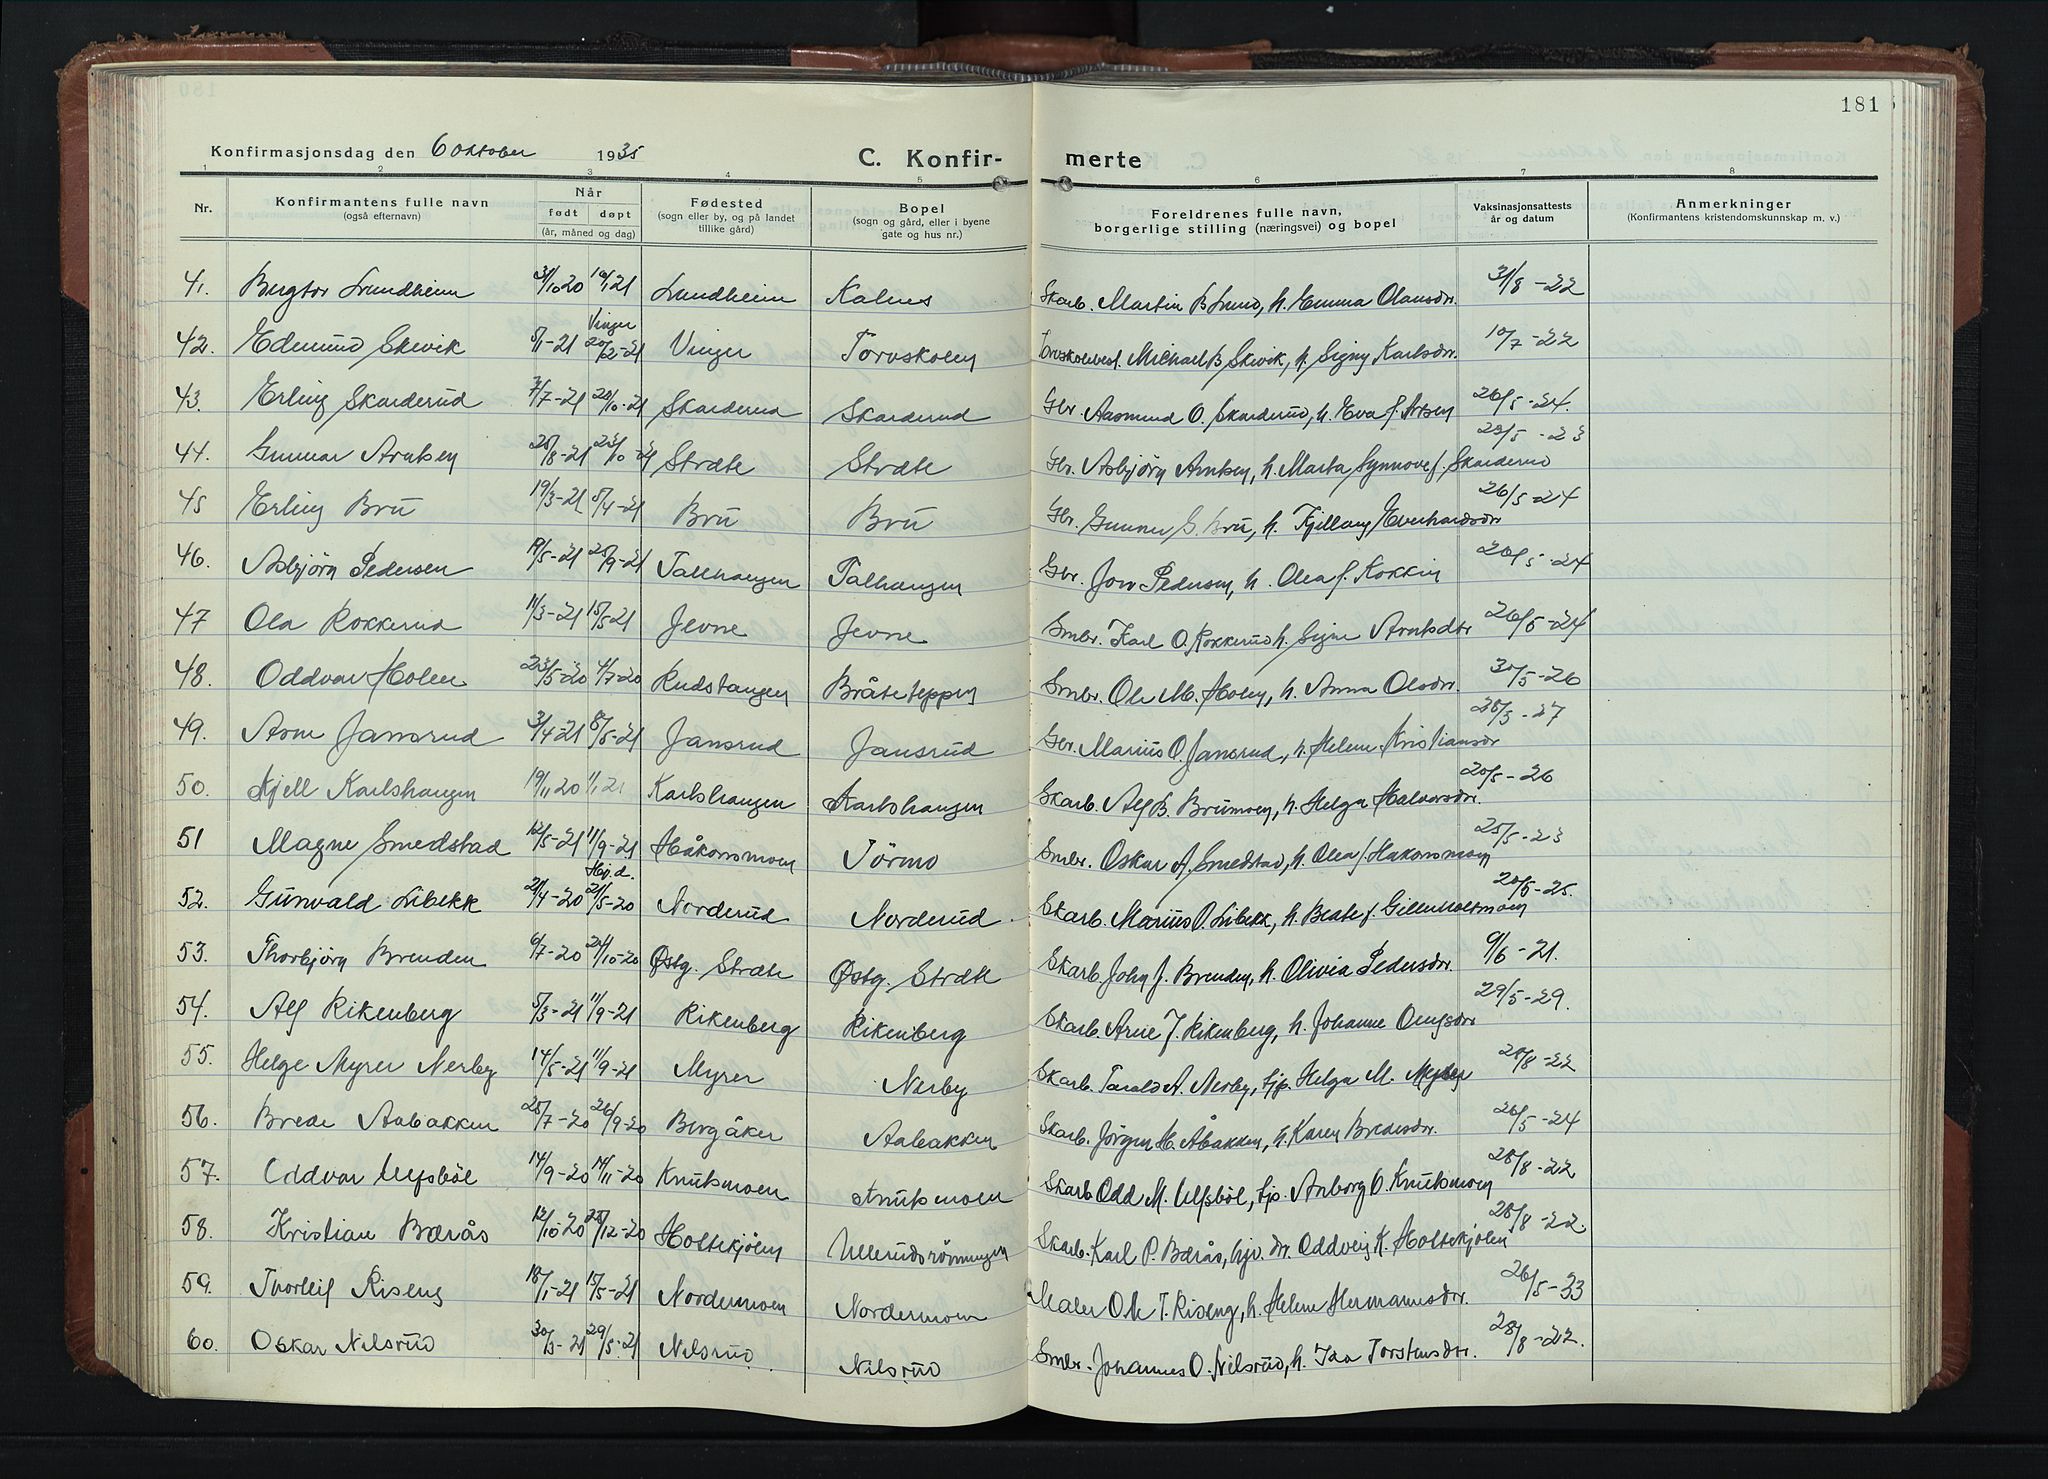 181
Konfirmasjonsdag den 6 oktober 1935
C. Konfir- merte
1 2 3 4 5 6 7 8
Nr.
Konfirmantens fulle navn
(også efternavn)
Når
født døpt
(år, måned og dag)
Fødested
(sogn eller by, og på landet
tillike gård)
Bopel
(sogn og gård, eller i byene
gate og hus nr.)
Foreldrenes fulle navn,
borgerlige stilling (næringsvei) og bopel
Vaksinasjonsattests
år og datum
Anmerkninger
(Konfirmantens kristendomskunnskap m. v.)
41. Bergtor Lundheim 31/10 20 Lundheim Kalnes Skarb. Martin B. Lund, h. Emma Olausdr. 31/8-22
Vinger
42. Edmund Skivik 5/1-21 20/2-21 Vinger Torvskolen Michael B. Skivik, h. Signy Karlsdr. 10/7-22
43. Erling Skarderud 7/7-21 20/10-21 Skarderud Skarderud Gbr. Aasmund O. Skarderud, h. Eva f. 26/5-24.
44. Gunnar Arntsen 20/8-21 23/10-21 Stræte Stræte Gbr. Asbjörn Arntsen, h. Marta Synnove f. Skarderud 23/5-23
45 Erling Brù 19/3-21 5/4-21 Brù Brù Gbr. Gunner G. Brù, h. Everhardsdr 26/5-24
46. Asbjörn Pedersen 19/5-21 25/9-21 Talhaugen Talhaugen Gbr. Jon Pedersen, h. Olea f. Kokkin 26/5-24
47 Ola Kokkerud 11/3-21 15/5 21 Jevne Jevne Smbr. Karl O. Kokkerud h. Signe Arntsdtr 26/5-24
48. Oddvar Holen 23/5-20 4/7-20 Rudstangen Bråteteppen Smbr. Ole M. Holen, h. Anna Olsdr. 30/5-26
49. Arne Jansrud 3/4-21 8/5-21 Jansrud Jansrùd Gbr. Marius O. Jansrud, h. Helene Kristiansdr 28/5-27
50. Kjell Karlshaugen 19/11 20 1/1 21 Karlshaugen Karlshaugen Skarb. Alf B. Brùmoen, h. Helga Halvorsdr. 20/5-26
51 Magne Smedstad 12/5-21 11/9-21 Håkonsmoen Törmo Smbr. Oskar A. Smedstad, h. Olea f. Hakonsmoen 25/5-23
Hj.d.
52. Gùnvald Libekk 21/4-20 21/5-20 Norderùd Norderùd Skarb. Marius P. Libekk, h. Beate f. Gillerholtmoen 20/5-25.
53. Thorbjörn Brenden 6/7-20 24/10-20 Østg. Stræte Østg. Stræte Skarb. John J. Brenden, h. Olivia Pedersdr. 9/6-21.
54. Alf Rikenberg 5/3-21 11/9-21 Rikenberg Rikenberg Skarb. Arne J. Rikenberg, h. Johanne 29/5-29.
55. Helge Myrer Nerby 14/5-21 11/9-21 Myrer Nerby Skarb. Tarald A. Nerby, tjp. Helga M. Myrer 28/8-22
56. Brede Aabakken 25/7-20 26/9-20 Bergåker Aabakken Skarb. Jörgen H. Åbakken, h. Karen Bredesdr. 26/5-24
57. Oddvar Ulfsböl 14/9-20 14/11-20 Knutsmoen Knutsmoen Skarb. Odd M. Ulfsböl, tjp. Anborg O. Knutsmoen 28/8-22
58. Kristian Bærås 12/10-20 28/12-20 Holtekjölen Ullerudsrönningen Skarb. Karl P. Bærås, hjv. dr. Oddveig K. Holtekjölen 28/8-22
59. Thorleif Riseng 18/1-21 15/5-21 Nordermoen Nordermoen Maler Ole T. Riseng, h. Helene Hermannsdr. 26/5-33
60. Oskar Nilsrùd 30/3-21 29/5-21 Nilsrùd Nilsrùd Smbr. Johannes O. Nilsrùd, h. Ida Torstensdr. 28/8-22.